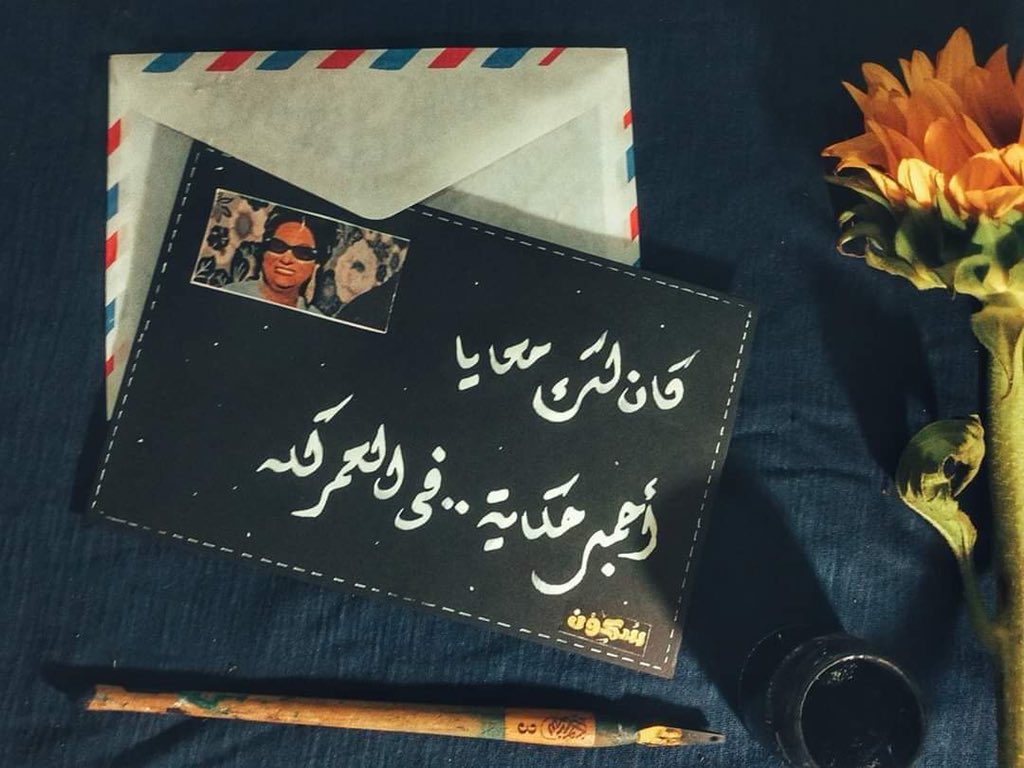 كان لك معايا
أجمل حكاية ..فى العمر كله
سكون
3